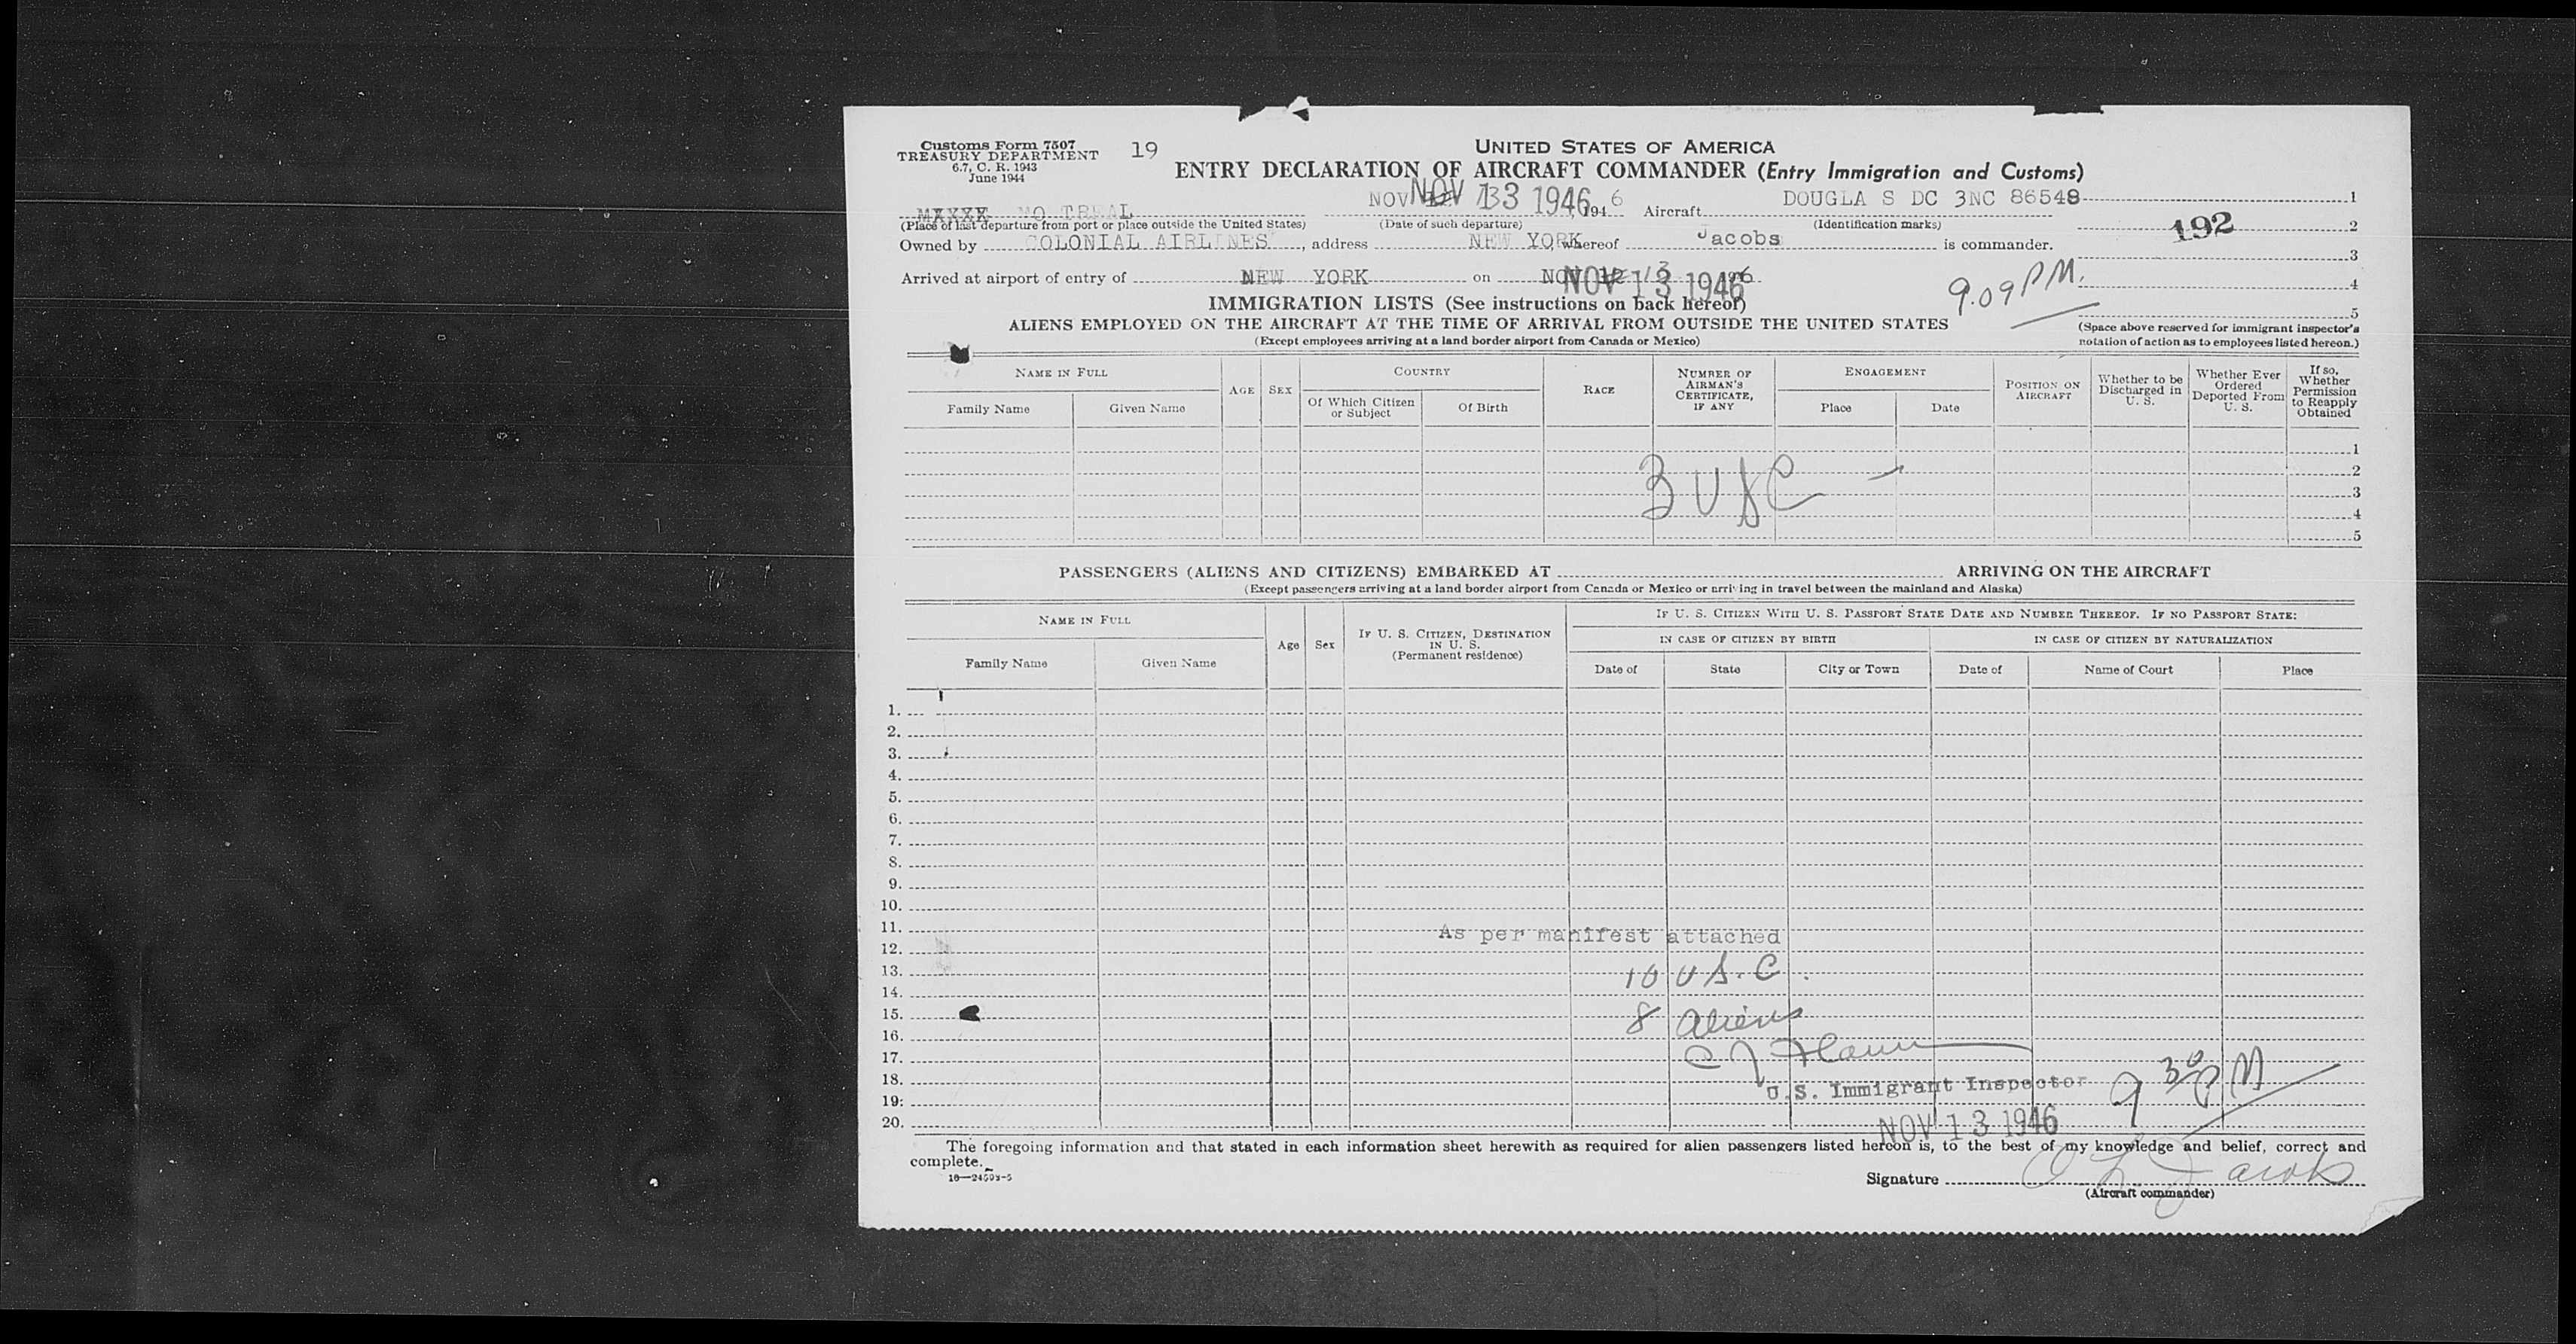 Customs Form 7507
TREASURY DEPARTMENT
6.7, C. R. 1943
June 1944
19
UNITED STATES OF AMERICA
ENTRY DECLARATION OF AIRCRAFT COMMANDER (Entry Immigration and Customs)
MO TREAL NOV NOV 13 1946, 194 6 Aircraft DOUGLA S DC 3NC 86548 1
(Place of last departure from port or place outside the United States) (Date of such departure) (Identification marks)
192 2
Owned by COLONIAL AIRLINES, address NEW YORK, whereof Jacobs is commander.
3
Arrived at airport of entry of NEW YORK on NOV 13 1946
9.09 PM. 4
5
IMMIGRATION LISTS (See instructions on back hereof)
ALIENS EMPLOYED ON THE AIRCRAFT AT THE TIME OF ARRIVAL FROM OUTSIDE THE UNITED STATES
(Except employees arriving at a land border airport from Canada or Mexico)
(Space above reserved for immigrant inspector's
notation of action as to employees listed hereon.)
NAME IN FULL
Family Name Given Name
AGE SEX
COUNTRY
Of Which Citizen or Subject Of Birth
RACE
NUMBER OF AIRMAN'S CERTIFICATE, IF ANY
ENGAGEMENT
Place Date
POSITION ON AIRCRAFT
Whether to be Discharged in U. S.
Whether Ever Ordered Deported From U. S.
If so, Whether Permission to Reapply Obtained
1
2
3
4
5
3 USC
PASSENGERS (ALIENS AND CITIZENS) EMBARKED AT ARRIVING ON THE AIRCRAFT
(Except passengers arriving at a land border airport from Canada or Mexico or arriving in travel between the mainland and Alaska)
NAME IN FULL
Family Name Given Name
Age Sex
IF U. S. CITIZEN, DESTINATION IN U. S.
(Permanent residence)
IF U. S. CITIZEN WITH U. S. PASSPORT STATE DATE AND NUMBER THEREOF. IF NO PASSPORT STATE:
IN CASE OF CITIZEN BY BIRTH IN CASE OF CITIZEN BY NATURALIZATION
Date of State City or Town Date of Name of Court Place
1.
2.
3.
4.
5.
6.
7.
8.
9.
10.
11.
As per manifest attached
12.
13. 10 U.S.C.
14.
15. 8 Aliens
16.
17. C J
18. U.S. Immigrant Inspector 9 30 PM
19.
20. NOV 13 1946
The foregoing information and that stated in each information sheet herewith as required for alien passengers listed hereon is, to the best of my knowledge and belief, correct and
complete.
16—24503-5
Signature C L Jacobs
(Aircraft commander)